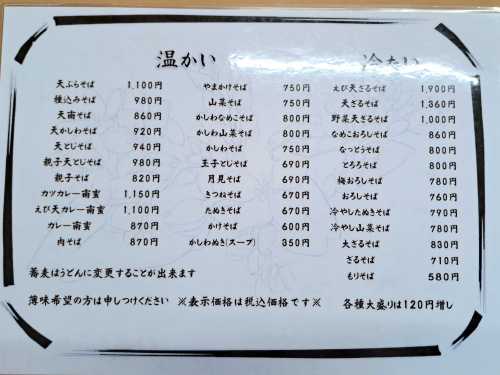 温かい
天ぷらそば 1,100円
種込みそば 980円
天南そば 860円
天かしわそば 920円
天とじそば 940円
親子天とじそば 980円
親子そば 820円
カツカレー南蛮 1,150円
えび天カレー南蛮 1,100円
カレー南蛮 870円
肉そば 870円
やまかけそば 750円
山菜そば 750円
かしわなめこそば 800円
かしわ山菜そば 800円
かしわそば 750円
玉子とじそば 690円
月見そば 690円
きつねそば 670円
たぬきそば 670円
かけそば 600円
かしわぬき(スープ) 350円
冷たい
えび天ざるそば 1,900円
天ざるそば 1,360円
野菜天ざるそば 1,000円
なめこおろしそば 860円
なっとうそば 800円
とろろそば 800円
梅おろしそば 780円
おろしそば 760円
冷やしたぬきそば 790円
冷やし山菜そば 780円
大ざるそば 830円
ざるそば 710円
もりそば 580円
蕎麦はうどんに変更することが出来ます
薄味希望の方は申しつけください ※表示価格は税込価格です※ 各種大盛りは120円増し